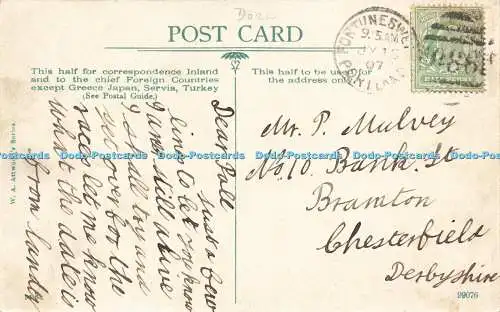 POST CARD
This half for correspondence Inland
and to the chief Foreign Countries
except Greece Japan, Servia, Turkey
(See Postal Guide.)
This half to be used for
the address only.
FORTUNESWELL
9.5 AM
JY 1
07
PORTLAND
Dear Poll
Just a few
lines to let you know
I am still alive
I shall try and
get over for the
race let me know
what the date is
from Sandy
Mr. P. Mulvey
No. 10. Bank. St
Bramton
Chesterfield
Derbyshire
99076
Dodo-Postcards Dodo-Postcards Dodo-Postcards Dodo-Postcards Dodo-Postcards